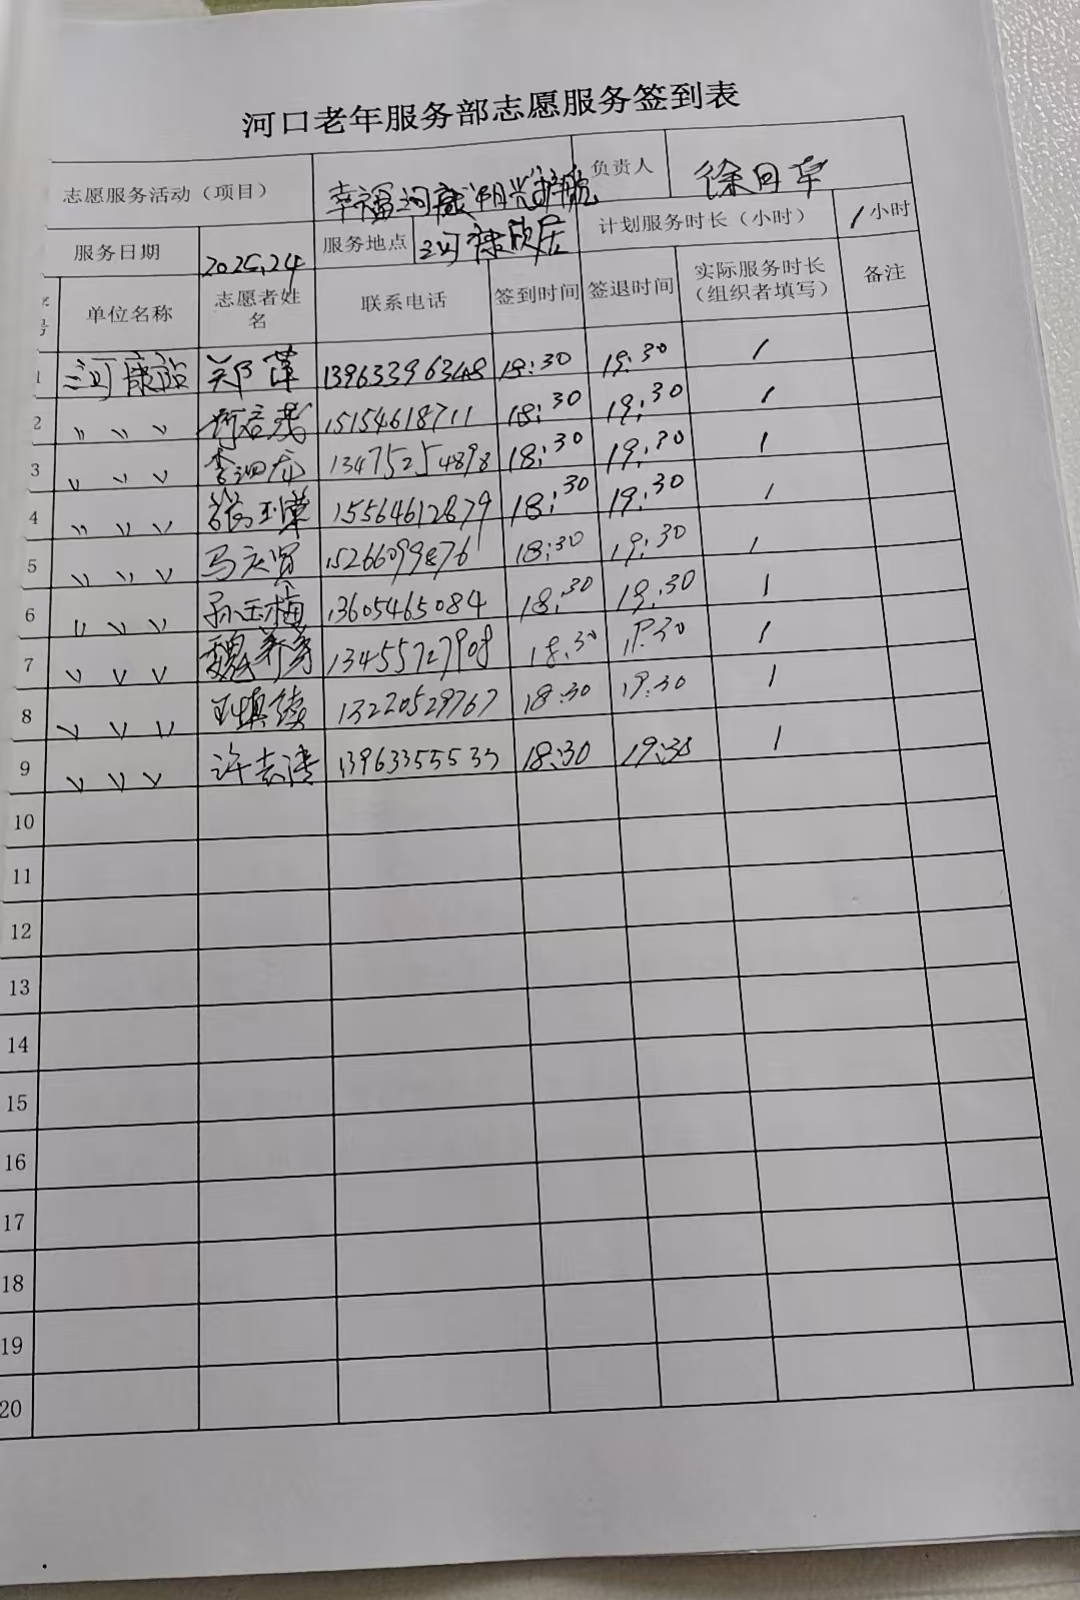 河口老年服务部志愿服务签到表
志愿服务活动（项目） 幸福河 阳光护航 负责人 徐
服务日期 2025,24 服务地点 三河康欣居 计划服务时长（小时） 1小时
号 单位名称 志愿者姓名 联系电话 签到时间 签退时间 实际服务时长（组织者填写） 备注
1 三河康 郑萍 13963396348 18:30 19:30 1
2 〃 〃 〃 15154618711 18:30 19:30 1
3 〃 〃 〃 李 13475254898 18:30 19:30 1
4 〃 〃 〃 玉 15564612879 18:30 19:30 1
5 〃 〃 〃 马庆贤 15266099876 18:30 19:30 1
6 〃 〃 〃 孙玉梅 13605465084 18:30 19:30 1
7 〃 〃 〃 魏 13455727908 18:30 19:30 1
8 〃 〃 〃 王 13220529767 18:30 19:30 1
9 〃 〃 〃 许志涛 13963355533 18:30 19:30 1
10
11
12
13
14
15
16
17
18
19
20